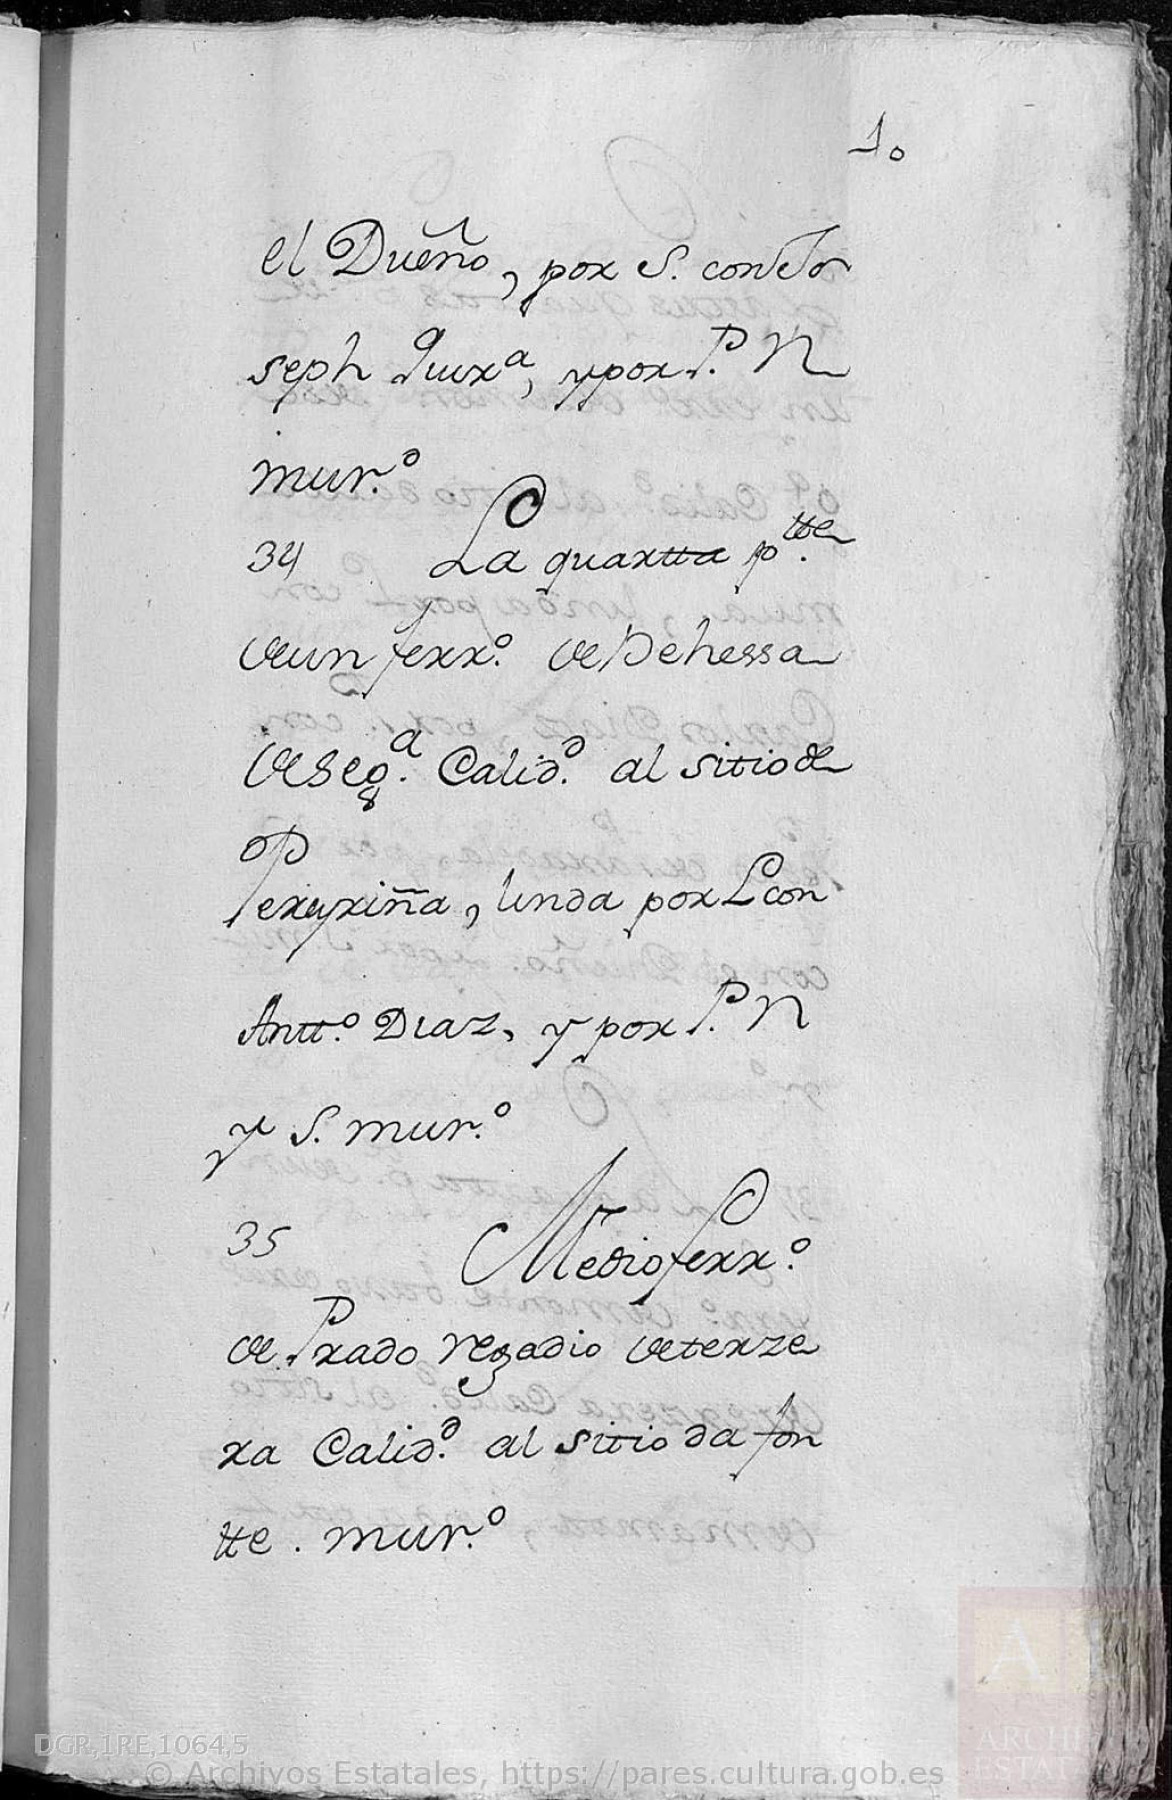 10
el Dueño, por S. con Jo
seph Quirª, y por P. N
mur.º
34 La quartta p.tte
de un ferr.º de Dehessa
de seg.ª Calid.d al sitio de
Pereyriña, linda por L con
Antt.º Diaz, y por P. N
y S. mur.º
35 Medio ferr.º
de Prado regadio de terze
ra Calid.d al sitio da fon
tte. mur.º
DGR,1RE,1064,5
© Archivos Estatales, https://pares.cultura.gob.es